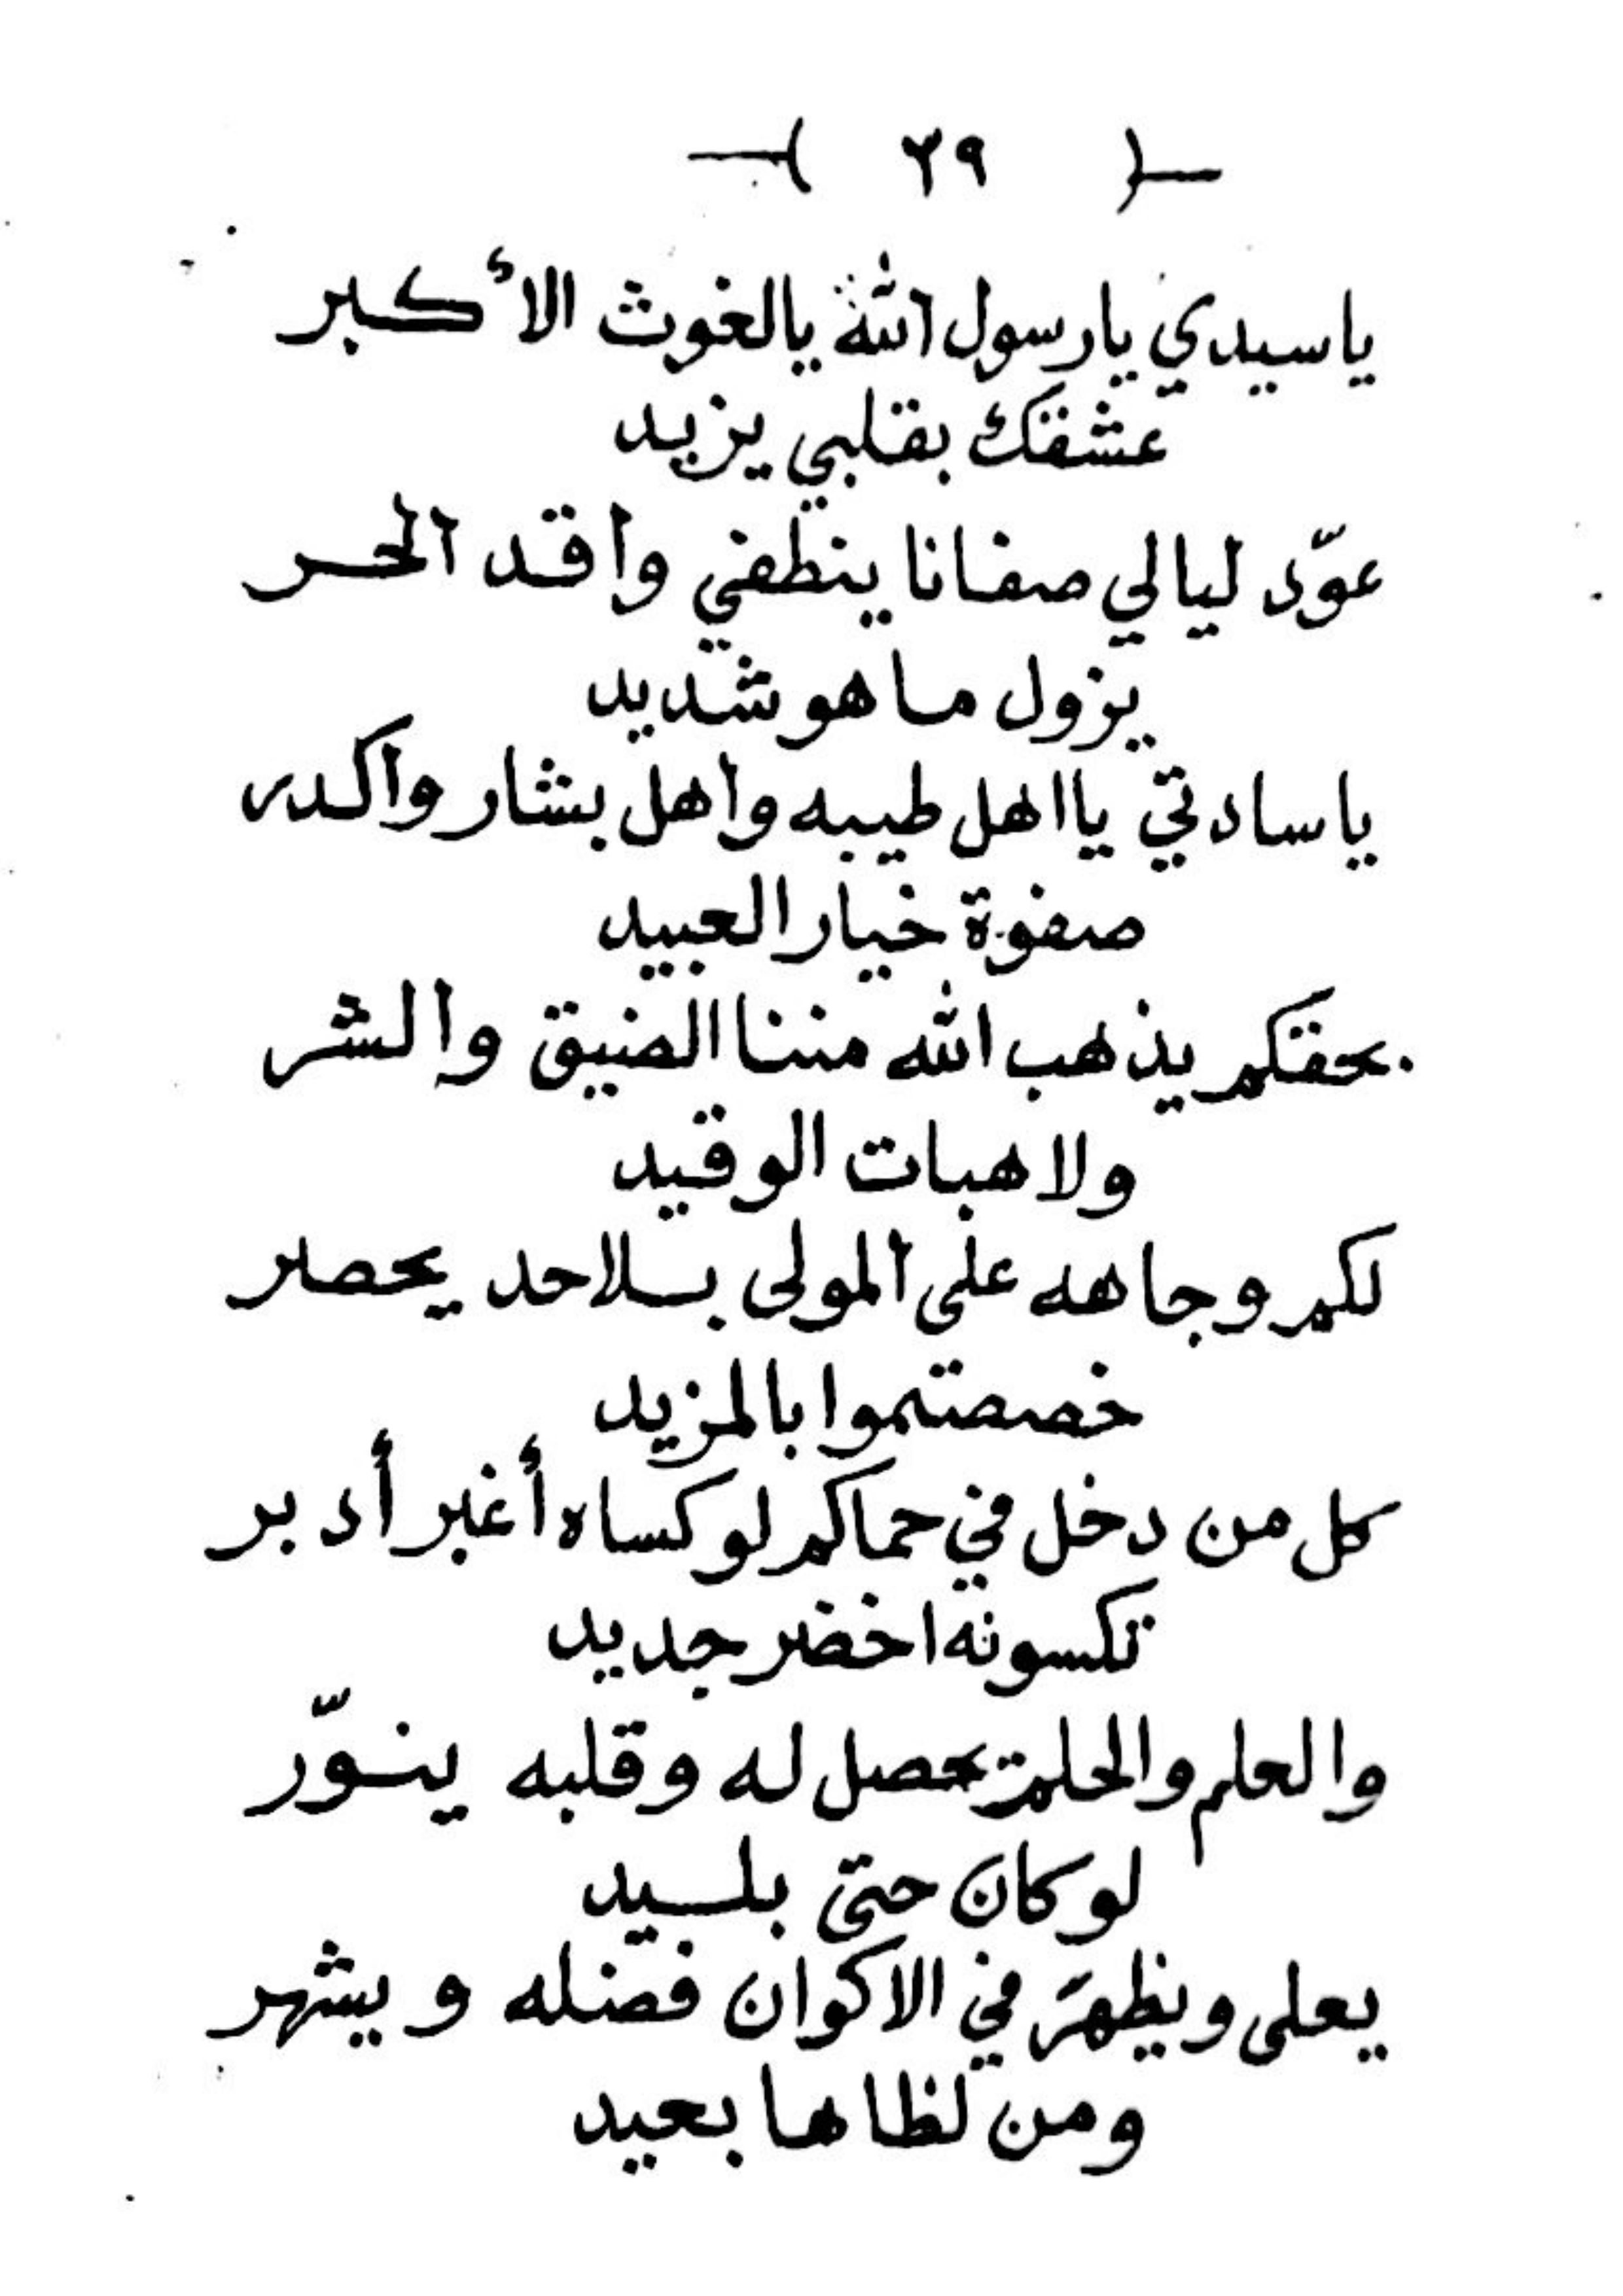 ( ٢٩ )
ياسيدي يارسول الله يالغوث الأكبر
عشقتك بقلبي يزيد
عوّد ليالي صفانا ينطفي واقد الحر
يزول ما هو شديد
ياسادتي يااهل طيبه واهل بشار واكدر
صفوة خيار العبيد
بحقكم يذهب الله مننا الضيق والشر
ولاهبات الوقيد
لكم وجاهه على المولى بلاحد يحصر
خصصتموا بالمزيد
كل من دخل في حماكم لو كساه أغبر أدبر
تكسونه اخضر جديد
والعلم والحلم تحصل له وقلبه ينوّر
لو كان حتى بليد
يعلى ويظهر في الاكوان فضله ويشهر
ومن لظاها بعيد